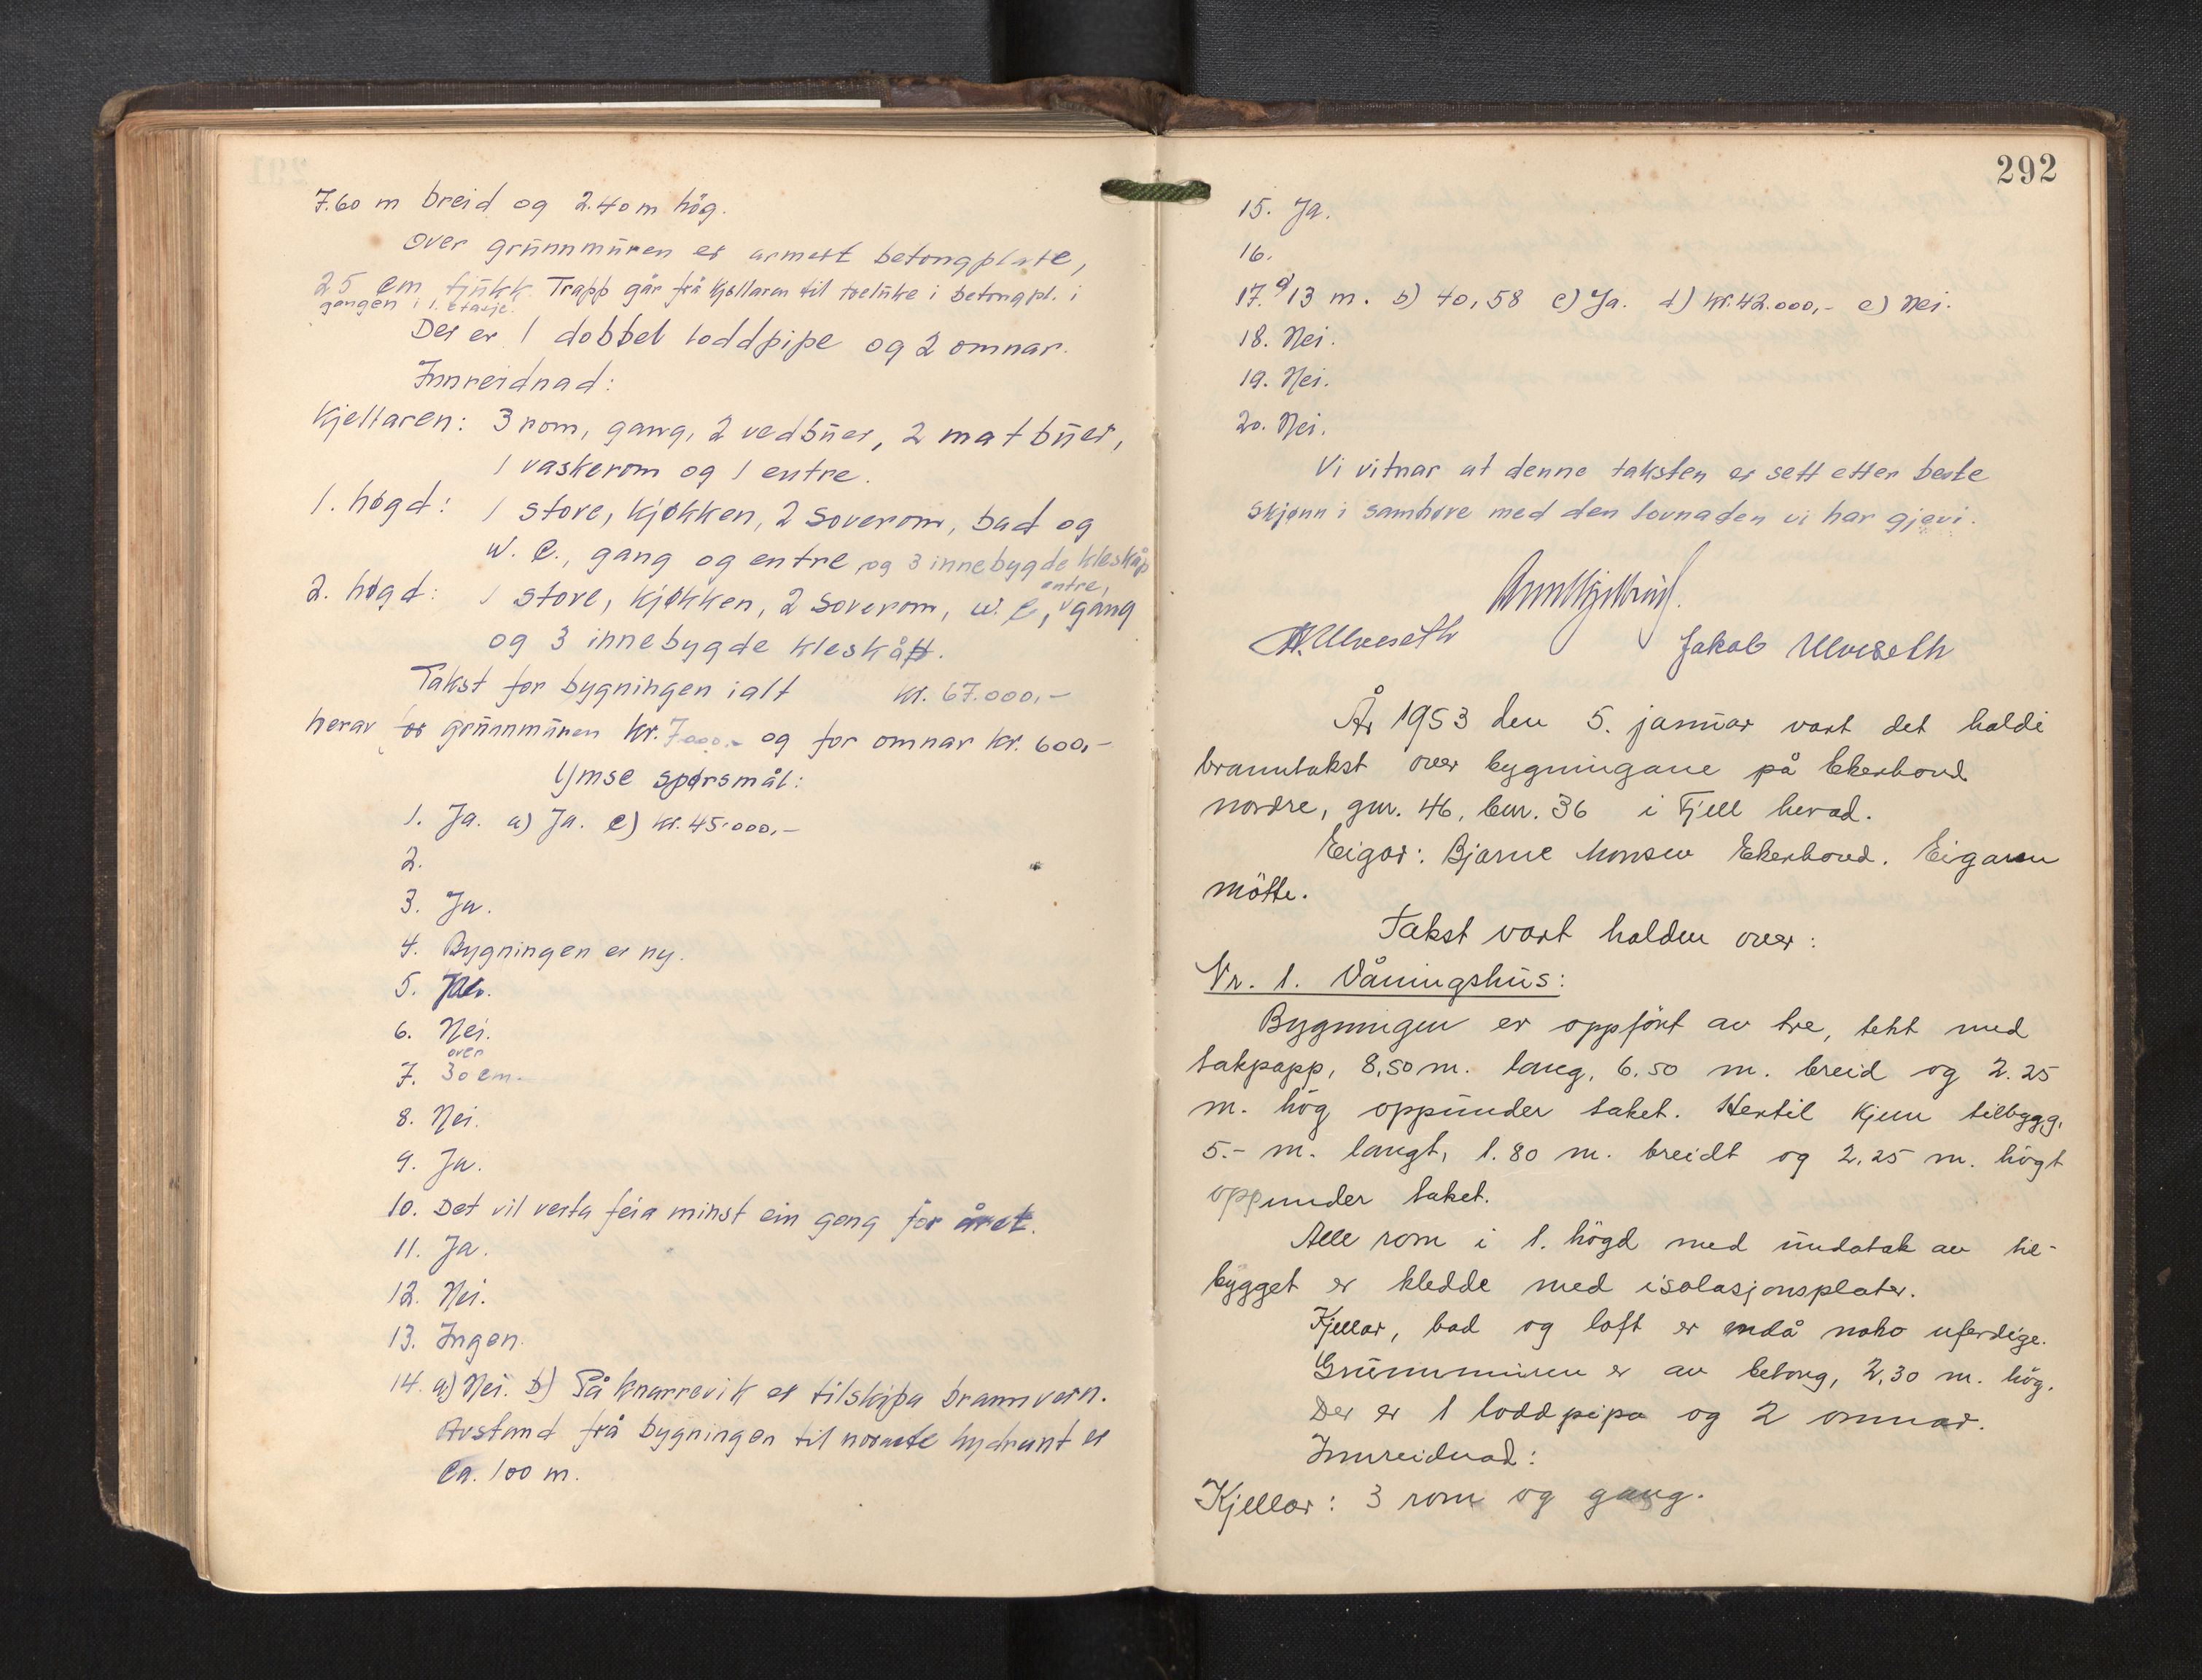 7.60 m breid og 2.40 m hög.
Over grunnmuren er armert betongplate,
25 cm tjukk. Trapp går frå kjellaren til toeluke i betongpl. i
gangen i 1. etasje.
Der er 1 dobbel loddpipe og 2 omnar.
Innreidnad:
Kjellaren: 3 rom, gang, 2 vedbuer, 2 matbuer,
1 vaskerom og 1 entre.
1. høgd: 1 stove, kjøkken, 2 soverom, bad og
W.C., gang og entre og 3 innebygde kleskåp
entre,
2. høgd: 1 stove, kjøkken, 2 soverom, W.C., gang
og 3 innebygde kleskåp.
Takst for bygningen ialt kr. 67.000,-
herav for grunnmuren kr. 7000,- og for omnar kr. 600,-
Ymse spørsmål:
1. Ja. a) Ja. c) kr. 45.000,-
2.
3. Ja.
4. Bygningen er ny.
5.
6. Nei.
over
7. 30 cm.
8. Nei.
9. Ja.
10. Det vil verta feia minst ein gong for året.
11. Ja.
12. Nei.
13. Ingen.
14. a) Nei. b) På Knarrevik er tilskipa brannvern.
Avstand frå bygningen til næraste hydrant er
Ca. 100 m.
292
15. Ja.
16.
17. a) 13 m. b) 40,58 c) Ja. d) kr. 42.000,- e) Nei.
18. Nei.
19. Nei.
20. Nei.
Vi vitnar at denne taksten er sett etter beste
skjønn i samhøve med den lovnaden vi har gjevi.
Ulveseth
Jakob Ulveseth
År 1953 den 5. januar vart det haldi
branntakst over bygningane på Ekerhovd
nordre, gnr. 46, bnr. 36 i Fjell herad.
Eigar: Bjarne Monsen Ekerhovd. Eigaren
mötte.
Takst vart halden over:
Nr. 1. Våningshus:
Bygningen er oppfört av tre, tekt med
takpapp, 8,50 m. lang, 6.50 m. breid og 2.25
m. hög oppunder taket. Hertil kjem tilbygg,
5.- m. langt, 1.80 m. breidt og 2,25 m. högt
oppunder taket.
Alle rom i 1. högd med undatak av til-
bygget er kledde med isolasjonsplater.
Kjellar, bad og loft er endå noko uferdige.
Grunnmuren er av betong, 2,30 m. hög.
Der er 1 loddpipa og 2 omnar.
Innreidnad:
Kjellar: 3 rom og gang.